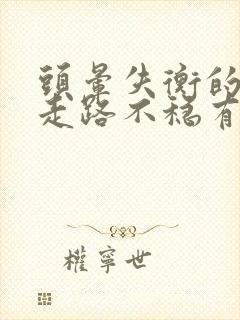 頭暈失衡的
走路不穩有
權寧世